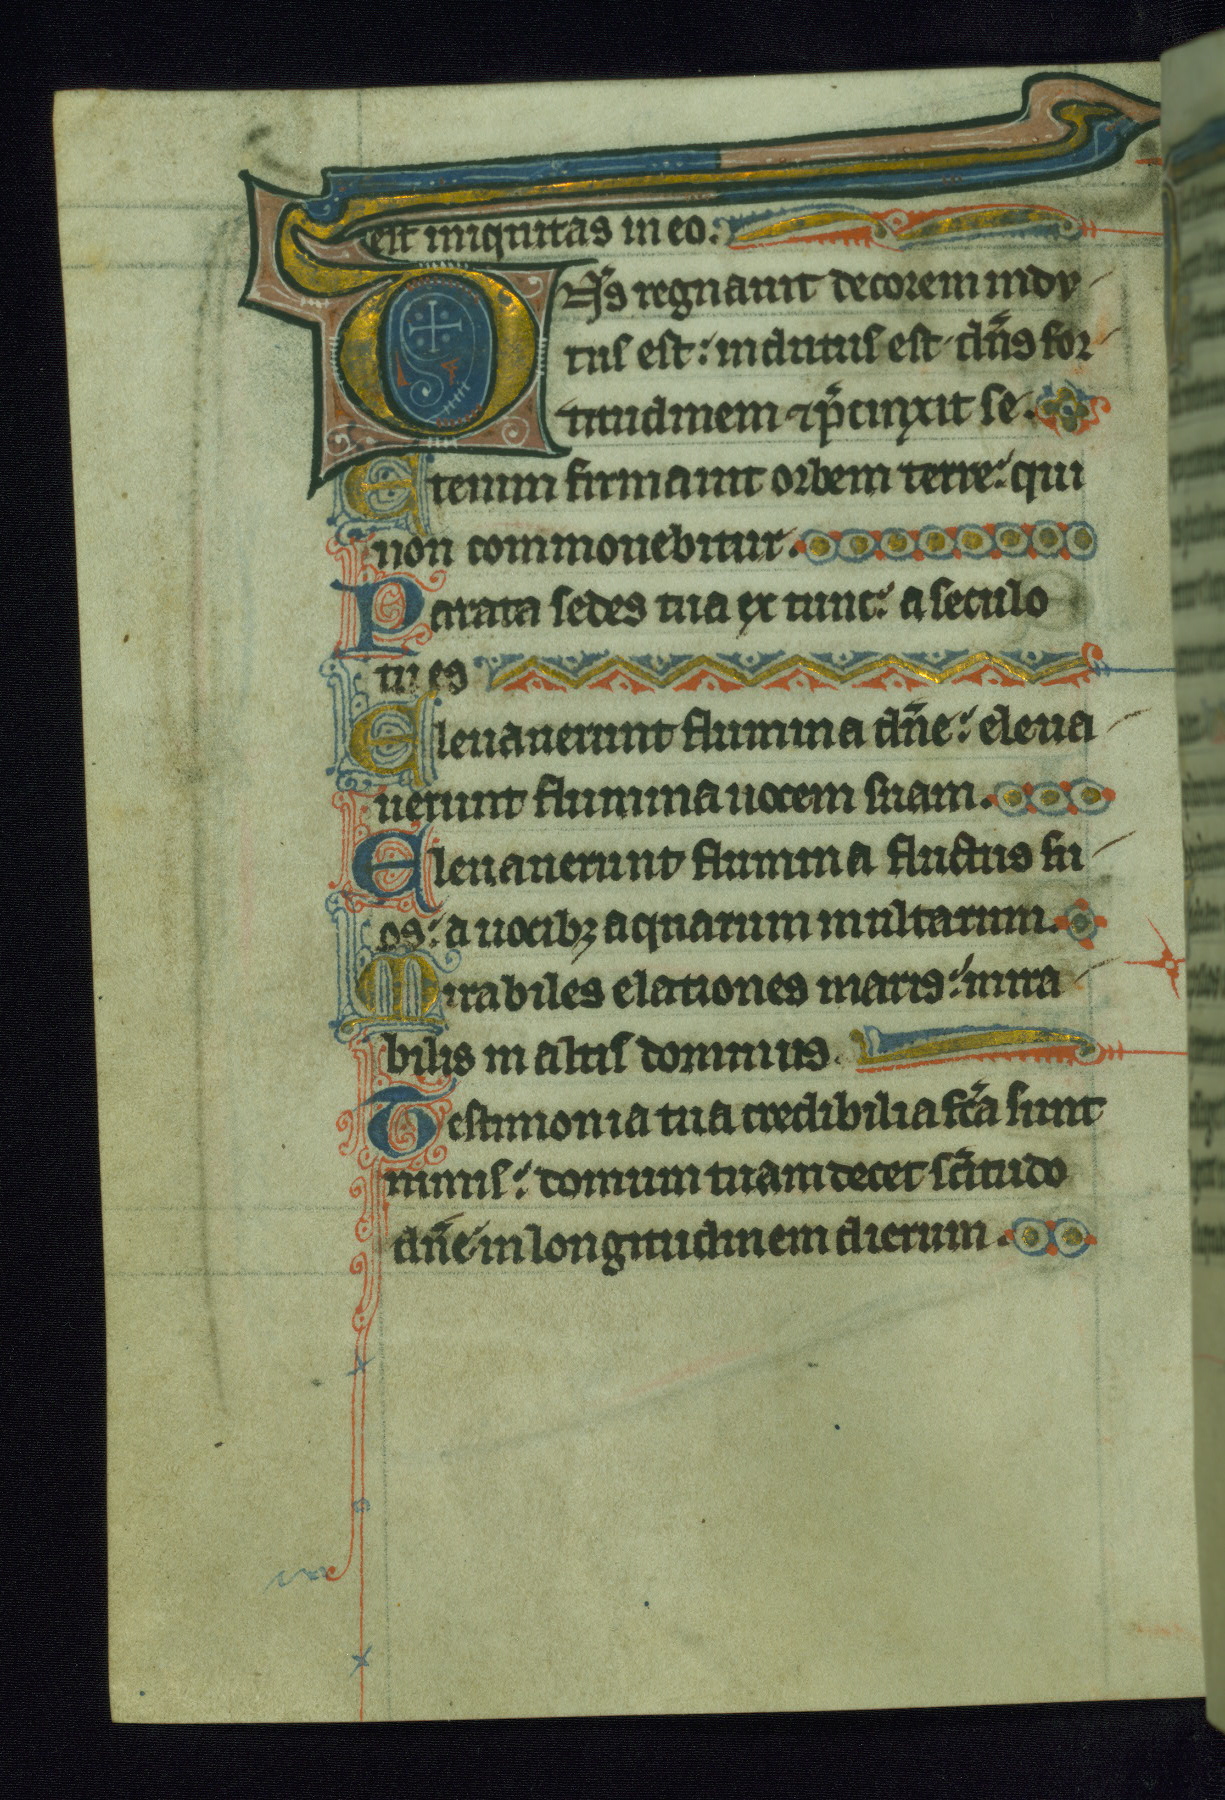 est iniquitas in eo.
Dn̄s regnauit decorem indu
tus est: indutus est dn̄s for
titudinem ⁊ p̄cinxit se.
Etenim firmauit orbem terre: qui
non commouebitur.
Parata sedes tua ex tunc: a seculo
tu es
Eleuauerunt flumina dn̄e: eleua
uerunt flumina uocem suam.
Eleuauerunt flumina fluctus su
os: a uocibꝫ aquarum multarum.
Mirabiles elationes maris: mira
bilis in altis dominus.
Testimonia tua credibilia fc̄a sunt
nimis: domum tuam decet sc̄itudo
dn̄e in longitudinem dierum.